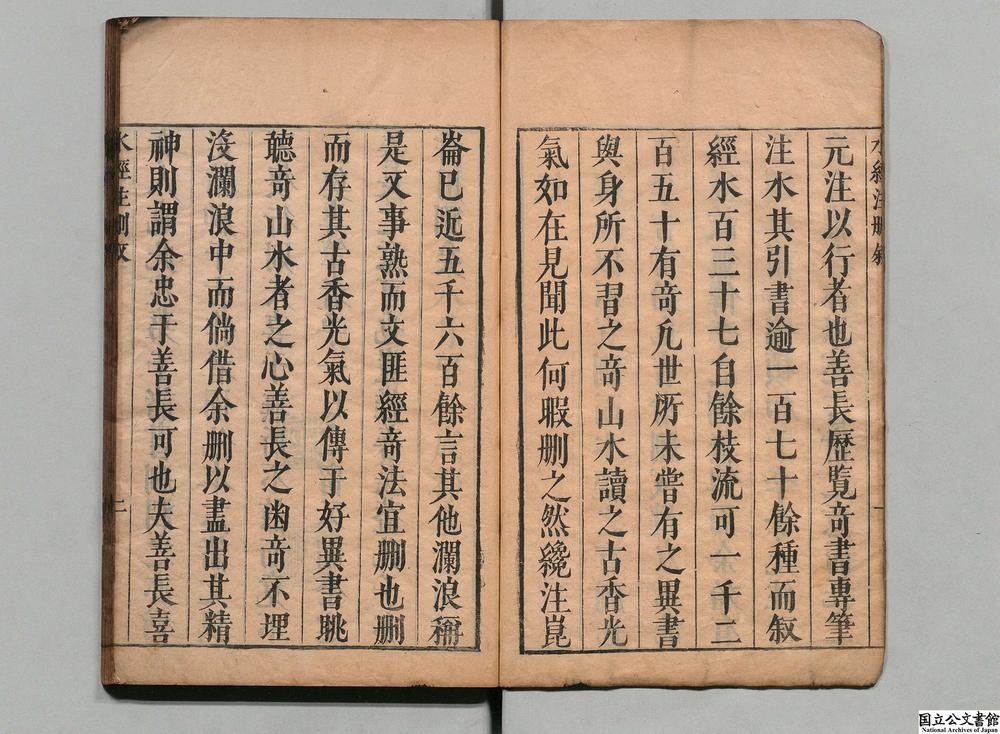 水經注刪敘
元注以行者也善長歷覽奇書專筆
注水其引書逾一百七十餘種而敘
經水百三十七自餘枝流可一千二
百五十有奇凢世所未嘗有之異書
與身所不習之奇山水讀之古香光
氣如在見聞此何暇刪之然纔注崑
崙已近五千六百餘言其他瀾浪稱
是又事熟而文匪經奇法宜刪也刪
而存其古香光氣以傳于好異書眺
聽奇山水者之心善長之幽奇不埋
沒瀾浪中而倘借余刪以盡出其精
神則謂余忠于善長可也夫善長喜
水經注刪敘
二
国立公文書館
National Archives of Japan